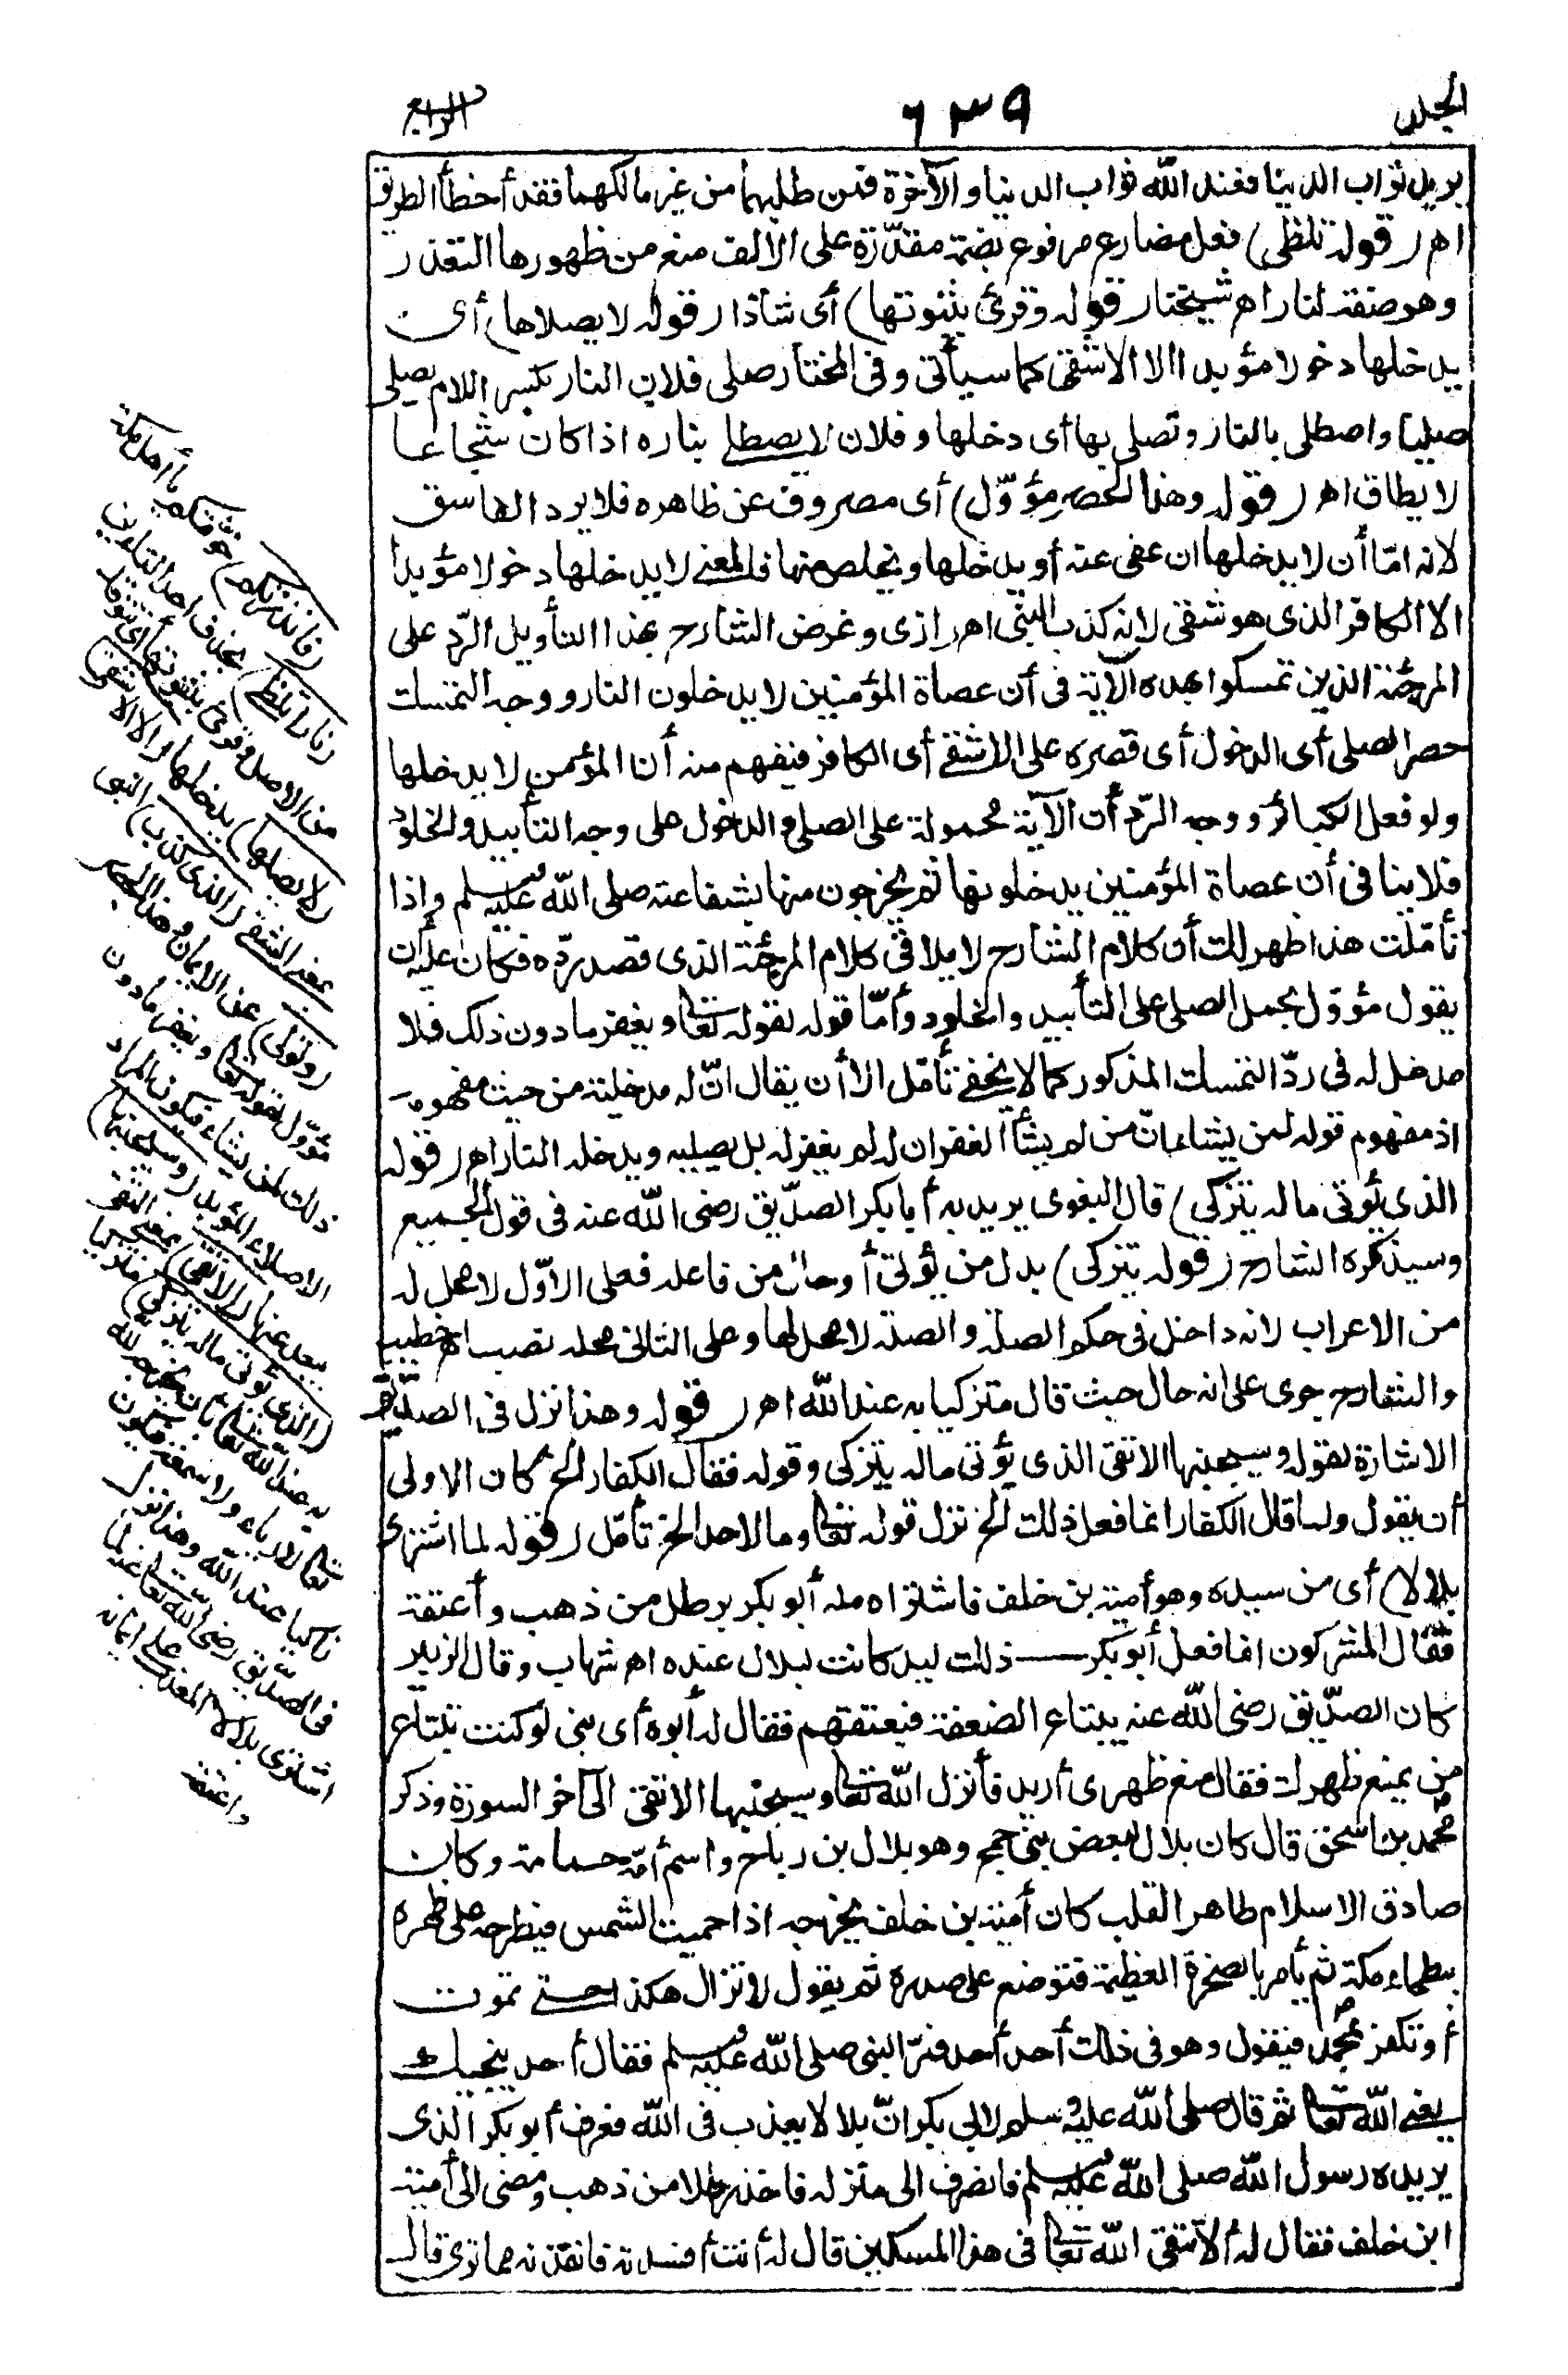 الجلد
٦٣٩
الرابع
يريد ثواب الدنيا فعند الله ثواب الدنيا والآخرة فمن طلبهما من غير مالكهما فقد أخطأ الطريق
اهـ (قوله تلظى) فعل مضارع مرفوع بضمة مقدّرة على الالف منع من ظهورها التعذر
وهو صفة لنارا اهـ شيخنا (قوله وقرئ بثبوتها) أى شاذا (قوله لا يصلاها) أى
يدخلها دخولا مؤبدا الا الاشقى كما سيأتى وفى المختار صلى فلان النار بكسر اللام يصلى
صليا واصطلى بالنار وتصلى بها أى دخلها وفلان لا يصطلى بناره اذا كان شجاعا
لا يطاق اهـ (قوله وهذا الحصر مؤوّل) أى مصروف عن ظاهره فلا يرد الفاسق
لانه امّا أن لا يدخلها ان عفى عنه أو يدخلها ويخلص منها فالمعنى لا يدخلها دخولا مؤبدا
الا الكافر الذى هو شقى لانه كذب النبى اهـ رازى وغرض الشارح بهذا التأويل الردّ على
المرجئة الذين تمسكوا بهذه الآية فى أن عصاة المؤمنين لا يدخلون النار ووجه التمسك
حصر الصلى أى الدخول أى قصره على الاشقى أى الكافر فيفهم منه أن المؤمن لا يدخلها
ولو فعل الكبائر ووجه الردّ أن الآية محمولة على الصلى والدخول على وجه التأبيد والخلود
فلا ينافى أن عصاة المؤمنين يدخلونها ثم يخرجون منها بشفاعته صلى الله عليه وسلم واذا
تأمّلت هذا ظهر لك أن كلام الشارح لا يلاقى كلام المرجئة الذى قصد ردّه فكان عليه أن
يقول مؤوّل بحمل الصلى على التأبيد والخلود وأمّا قوله لقوله تعالى ويغفر ما دون ذلك فلا
مدخل له فى ردّ التمسك المذكور كما لا يخفى تأمّل الا أن يقال انّ له مدخلية من حيث مفهومه
اذ مفهوم قوله لمن يشاء انّ من لم يشأ الغفران له لم يغفر له بل يصليه ويدخله النار اهـ (قوله
الذى يؤتى ماله يتزكى) قال البغوى يريد به أبا بكر الصدّيق رضى الله عنه فى قول الجميع
وسيذكره الشارح (قوله يتزكى) بدل من يؤتى أو حال من فاعله فعلى الاوّل لا محل له
من الاعراب لانه داخل فى حكم الصلة والصلة لا محل لها وعلى الثانى محله نصب اهـ خطيب
والشارح جرى على انه حال حيث قال متزكيا به عند الله اهـ (قوله وهذا نزل فى الصدّيق)
الاشارة لقوله وسيجنبها الاتقى الذى يؤتى ماله يتزكى وقوله فقال الكفار الخ كان الاولى
أن يقول ولما قال الكفار انما فعل ذلك الخ نزل قوله تعالى وما لاحد الخ تأمّل (قوله لما اشترى
بلالا) أى من سيده وهو أمية بن خلف فاشتراه منه أبو بكر برطل من ذهب وأعتقه
فقال المشركون انما فعل أبو بكر ذلك ليد كانت لبلال عنده اهـ شهاب وقال الزبير
كان الصدّيق رضى الله عنه يبتاع الضعفة فيعتقهم فقال له أبوه أى بنى لو كنت تبتاع
من يمنع ظهرك فقال منع ظهرى أريد فأنزل الله تعالى وسيجنبها الاتقى الى آخر السورة وذكر
محمد بن اسحق قال كان بلال لبعض بنى جمح وهو بلال بن رباح واسم أمّه حمامة وكان
صادق الاسلام طاهر القلب كان أمية بن خلف يخرجه اذا حميت الشمس فيطرحه على ظهره
ببطحاء مكة ثم يأمر بالصخرة العظيمة فتوضع على صدره ثم يقول لا تزال هكذا حتى تموت
أو تكفر بمحمد فيقول وهو فى ذلك أحد أحد فمرّ النبى صلى الله عليه وسلم فقال أحد ينجيك
يعنى الله تعالى ثم قال صلى الله عليه وسلم لابى بكر انّ بلالا يعذب فى الله فعرف أبو بكر الذى
يريده رسول الله صلى الله عليه وسلم فانصرف الى منزله فاخذ رطلا من ذهب ومضى الى أمية
ابن خلف فقال له ألا تتقى الله تعالى فى هذا المسكين قال له أنت أفسدته فانقذنه مما ترى قال
(فانذرتكم) خوفتكم يا أهل مكة
(نارا تلظى) بحذف احدى التاءين
من الاصل وقرئ بثبوتها أى تتوقد
(لا يصلها) يدخلها (الا الاشقى)
بمعنى الشقى (الذى كذب) النبى
(وتولى) عن الايمان وهذا الحصر
مؤوّل لقوله تعالى ويغفر ما دون
ذلك لمن يشاء فيكون المراد
الاصلاء المؤبد (وسيجنبها)
يبعد عنها (الاتقى) بمعنى التقى
(الذى يؤتى ماله يتزكى) متزكيا
به عند الله تعالى بان يخرجه لله
تعالى لا رياء ولا سمعة فيكون
زاكيا عند الله وهذا نزل
فى الصدّيق رضى الله تعالى عنه لما
اشترى بلالا المعذب على ايمانه
واعتقه